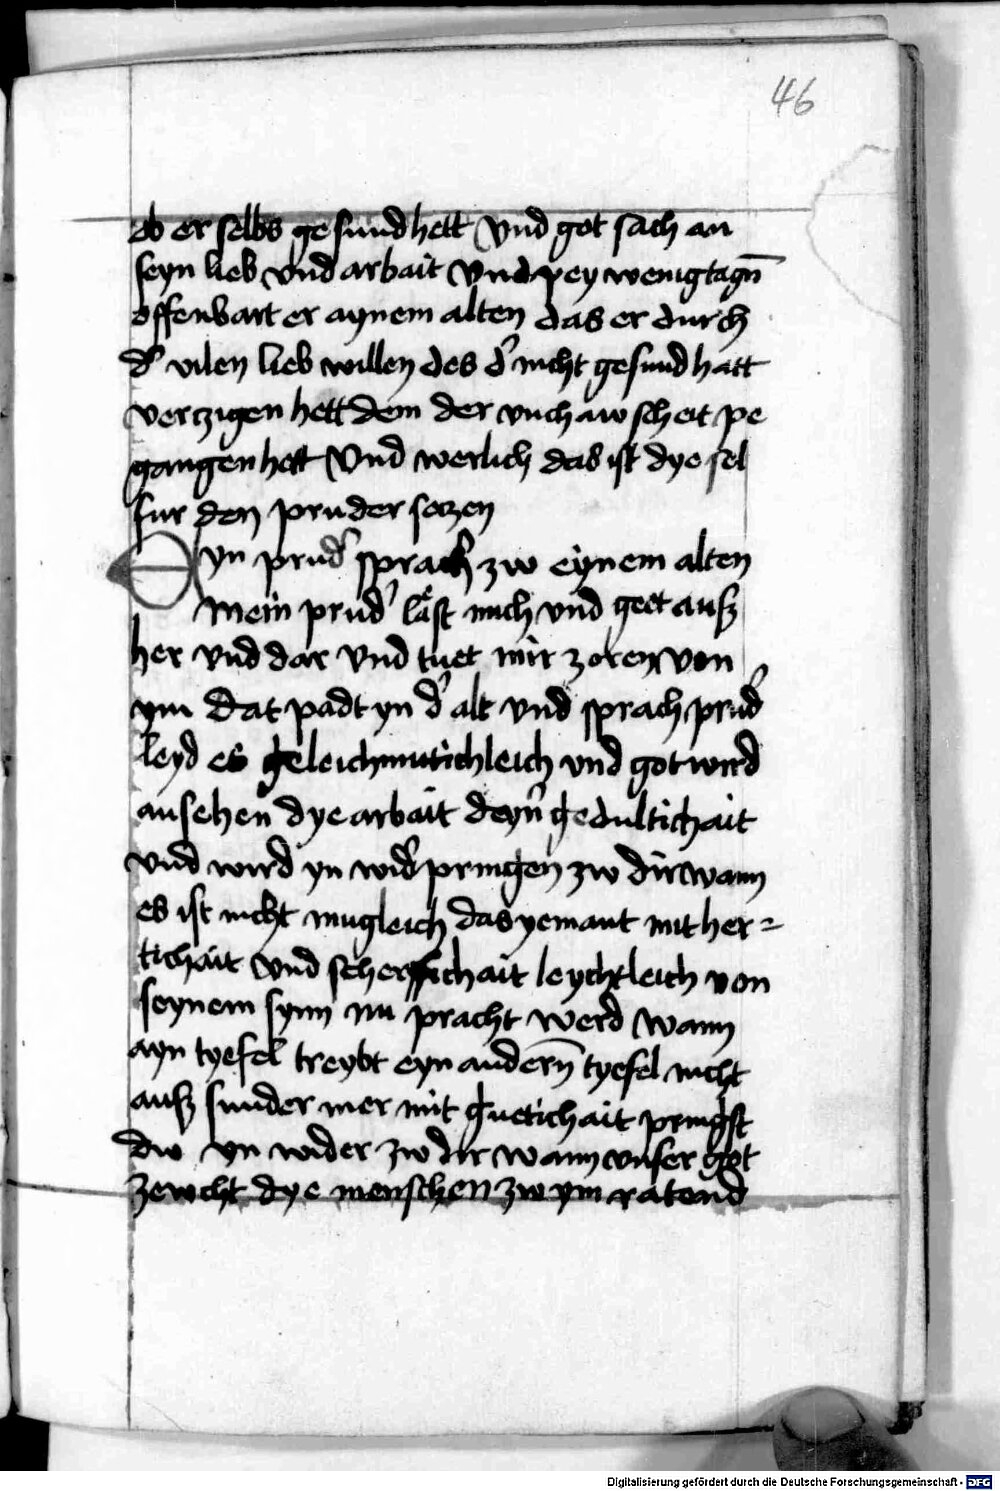 46
ob er selbs gesund hett Vnd got sach an
seyn lieb vnd arbait Vnd pey wenig tagn̄
offenbart er aynem alten das er durch
d' vilen lieb willen des d' nicht gesund hatt
verczigen hett dem der vnchawscheit pe
gangen hett Vnd werlich das ist dye sel
fur den pruder seczen
Eyn prud' sprach zw eynem alten
mein prud' läst mich vnd geet ausz
her vnd dar Vnd tuet mir zoren von
ym Dat padt yn d' alt vnd sprach prud'
leyd es geleichmutichleich vnd got wird
ansehen dye arbait deyn' gedultichait
vnd wird yn wid' pringen zw dir wann
es ist nicht mugleich das yemant mit her=
tichait Vnd scherffichait leychtleich von
seynem synn nu pracht werd Wann
ayn tyefel treybt eyn andern̄ tyefel nicht
ausz sunder mer mit guetichait pringst
dw yn wider zw dir wann vnser got
zewcht dye menschen zw ym ratend
Digitalisierung gefördert durch die Deutsche Forschungsgemeinschaft - DFG